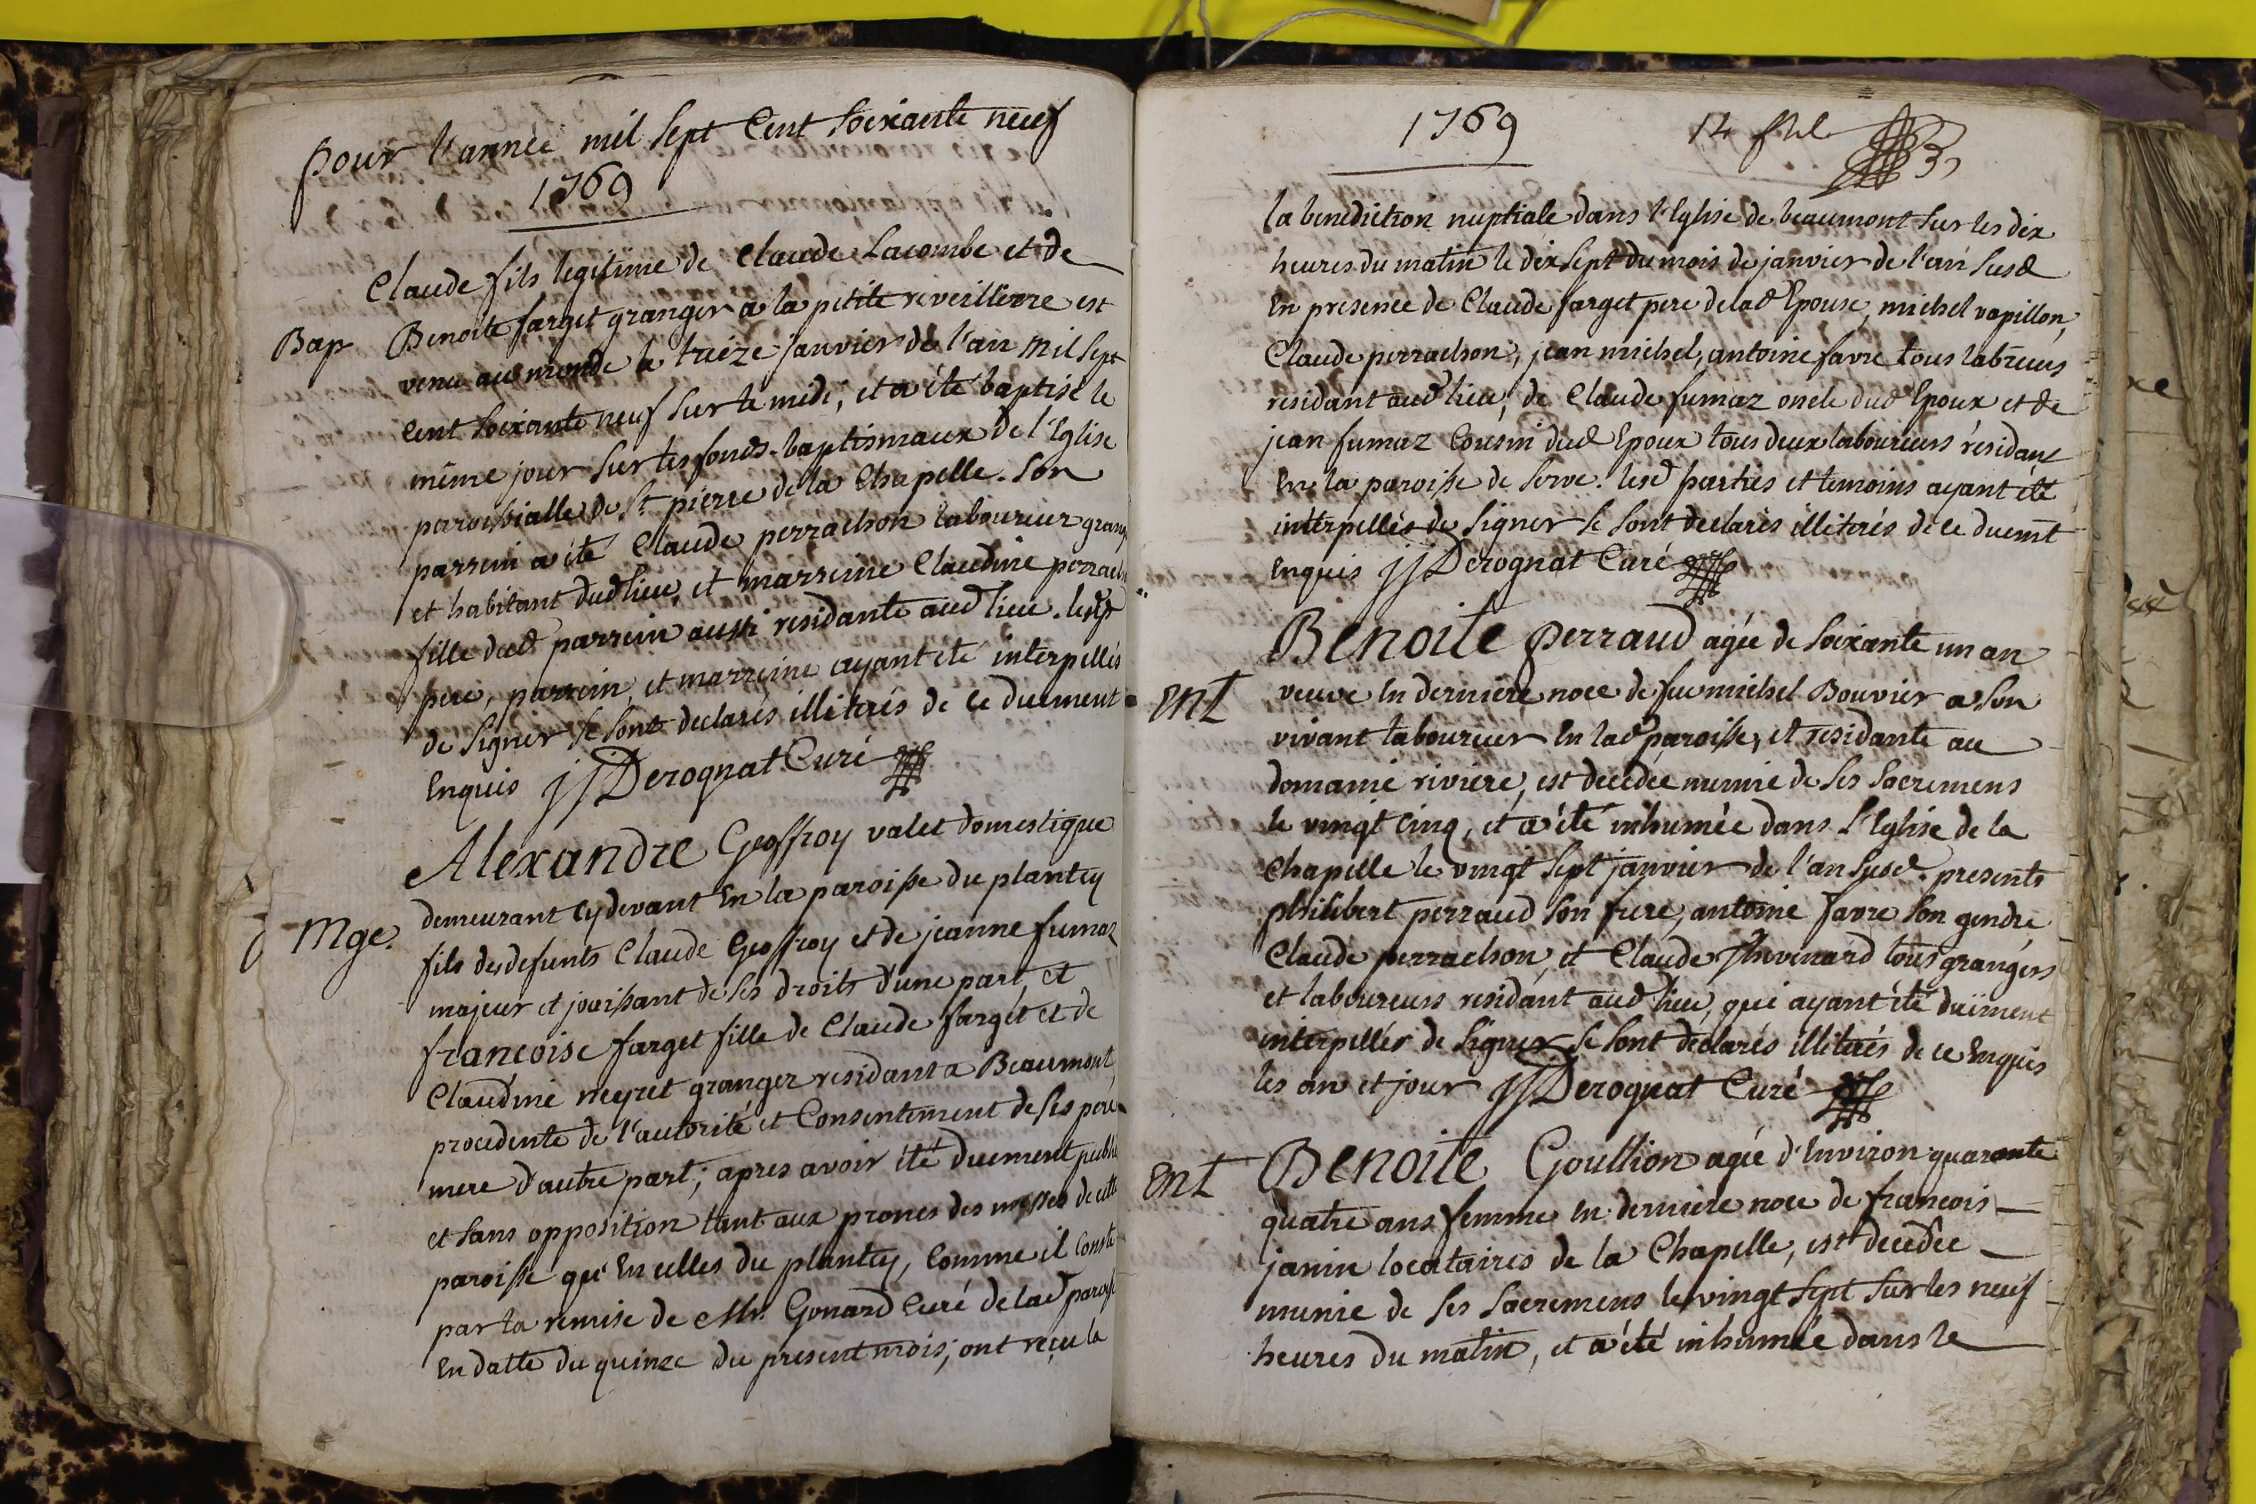 pour l'année mil sept Cent soixante neuf
1769
Claude fils legitime de Claude Lacombe et de
Bap Benoite farget granger a la petite reveilliere est
venu au monde le treize janvier de l'an mil sept
Cent soixante neuf sur le midi, et a été baptisé le
même jour sur les fonds-baptismaux de l'Eglise
paroissialle de St pierre de la Chapelle. son
parrein a été Claude perrachon laboureur grang
et habitant dud lieu, et marreine Claudine perrach
fille dud parrein aussi residante aud lieu. lesd
pere, parrein, et marreine ayant eté interpellés
de signer se sont declarés illiterés de ce duement
Enquis jjDerognat Curé
Alexandre Geoffroy valet domestique
demeurant cydevant En la paroisse du plantey
Mge. fils des defunts Claude Geoffroy et de jeanne fumaz
majeur et jouissant de ses droits d'une part, et
francoise farget fille de Claude farget et de
Claudine neyret granger residant a Beaumont
procedente de l'autorité et Consentement de ses pere
mere d'autre part; apres avoir été duement publié
et sans opposition tant aux prones des messes de cette
paroisse qu'En celles du plantey, Comme il Conste
par la remise de Mr. Gonard Curé de lad paroisse
En datte du quinze du present mois; ont reçu la
1769
14 
la benediction nuptiale dans l'Eglise de beaumont sur les dix
heures du matin le dix sept du mois de janvier de l'an susd
En presence de Claude farget pere de lad Epouse, michel vapillon,
Claude perrachon, jean michel, antoine favre tous labreurs
residant aud lieu, de Claude fumaz oncle dud Epoux et de
jean fumaz Cousin dud Epoux tous deux laboureurs residant
En la paroisse de serve. lesd parties et temoins ayant été
interpellés de signer se sont declarés illiterés de ce duemt
Enquis jjDerognat Curé
Benoite perraud agée de soixante un an
Ent veuve En derniere noce de feu michel Bouvier a son
vivant laboureur En lad paroisse, et residante au
domaine riviere, est decedée munie de ses sacremens
le vingt cinq, et a été inhumée dans l'Eglise de la
Chapelle le vingt sept janvier de l'an susd. presents
philibert perraud son frere, antoine favre son gendre
Claude perrachon, et Claude thevenard tous grangers
et laboureurs residant aud lieu, qui ayant été duëment
interpellés de signer se sont declarés illiterés de ce Enquis
les an et jour jjDerognat Curé
Ent Benoite Goullion agée d'Environ quarante
quatre ans femme En derniere noce de francois
janin locataires de la Chapelle, est decedée
munie de ses sacremens le vingt sept sur les neuf
heures du matin, et a été inhumée dans le